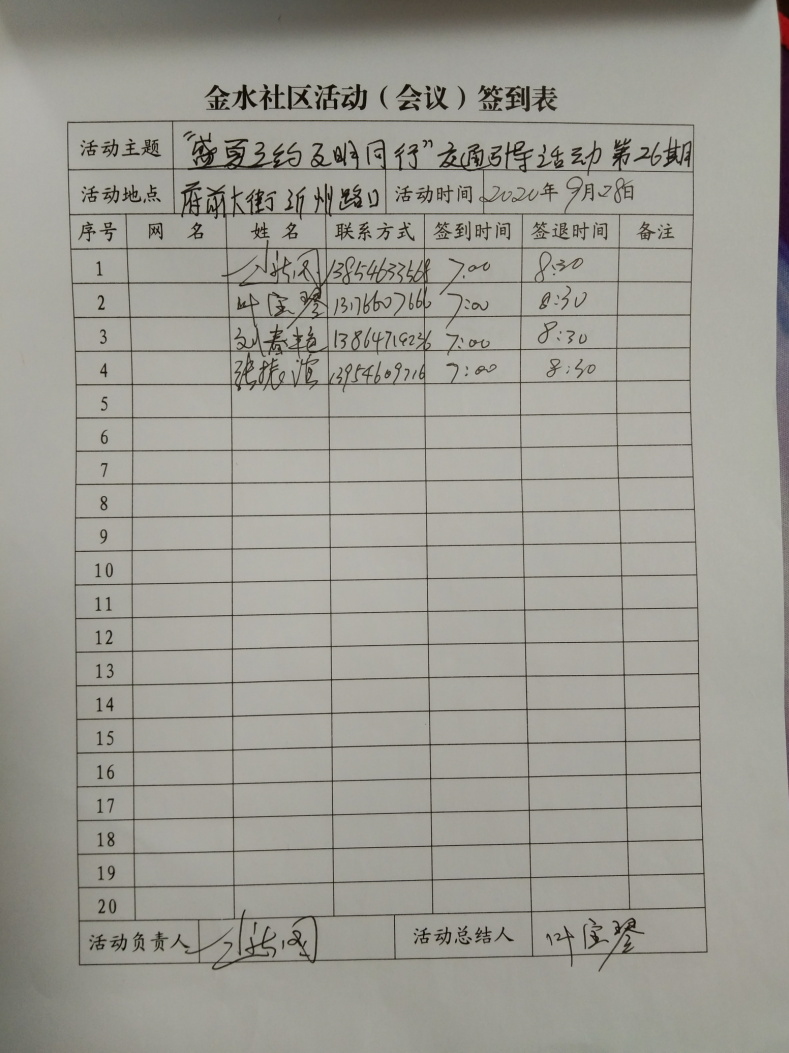 金水社区活动（会议）签到表
活动主题 "盛夏之约 文明同行"交通引导活动 第26期
活动地点 府前大街沂州路口 活动时间 2020年9月28日
序号 网 名 姓 名 联系方式 签到时间 签退时间 备注
1 13854633568 7:00 8:30
2 叶宝琴 13176607666 7:00 8:30
3 刘春艳 7:00 8:30
4 张振 13954609716 7:00 8:30
5
6
7
8
9
10
11
12
13
14
15
16
17
18
19
20
活动负责人 活动总结人 叶宝琴